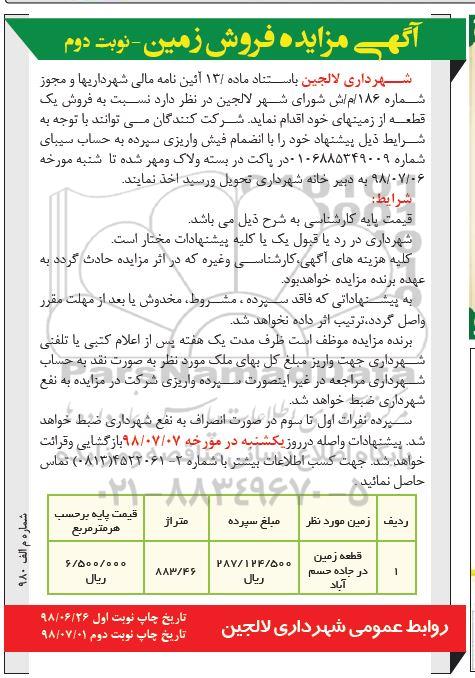 آگهی مزایده فروش زمین - نوبت دوم
شهرداری لالجین باستناد ماده /۱۳ آئین نامه مالی شهرداریها و مجوز
شماره ۱۸۶/م/ش شورای شهر لالجین در نظر دارد نسبت به فروش یک
قطعه از زمینهای خود اقدام نماید. شرکت کنندگان می توانند با توجه به
شرایط ذیل پیشنهاد خود را با انضمام فیش واریزی سپرده به حساب سیبای
شماره ۰۱۰۶۸۸۵۳۴۹۰۰۹ در پاکت در بسته ولاک ومهر شده تا شنبه مورخه
۹۸/۰۷/۰۶ به دبیر خانه شهرداری تحویل ورسید اخذ نمایند.
شرایط:
قیمت پایه کارشناسی به شرح ذیل می باشد.
شهرداری در رد یا قبول یک یا کلیه پیشنهادات مختار است.
کلیه هزینه های آگهی،کارشناسی وغیره که در اثر مزایده حادث گردد به
عهده برنده مزایده خواهدبود.
به پیشنهاداتی که فاقد سپرده ، مشروط، مخدوش یا بعد از مهلت مقرر
واصل گردد،ترتیب اثر داده نخواهد شد.
برنده مزایده موظف است ظرف مدت یک هفته پس از اعلام کتبی یا تلفنی
شهرداری جهت واریز مبلغ کل بهای ملک مورد نظر به صورت نقد به حساب
شهرداری مراجعه در غیر اینصورت سپرده واریزی شرکت در مزایده به نفع
شهرداری ضبط خواهد شد.
سپرده نفرات اول تا سوم در صورت انصراف به نفع شهرداری ضبط خواهد
شد. پیشنهادات واصله درروز یکشنبه در مورخه ۹۸/۰۷/۰۷ بازگشایی وقرائت
خواهد شد. جهت کسب اطلاعات بیشتر با شماره ۲-۴۵۲۲۰۶۱(۰۸۱۳) تماس
حاصل نمائید .
ردیف زمین مورد نظر مبلغ سپرده متراژ قیمت پایه برحسب هرمترمربع
۱ قطعه زمین در جاده حسم آباد ۲۸۷/۱۲۴/۵۰۰ ریال ۸۸۳/۴۶ ۶/۵۰۰/۰۰۰ ریال
شماره م الف ۹۸۰
روابط عمومی شهرداری لالجین
تاریخ چاپ نوبت اول ۹۸/۰۶/۲۶
تاریخ چاپ نوبت دوم ۹۸/۰۷/۰۱
۰۲۱-۸۸۳۴۹۶۷۰-۵